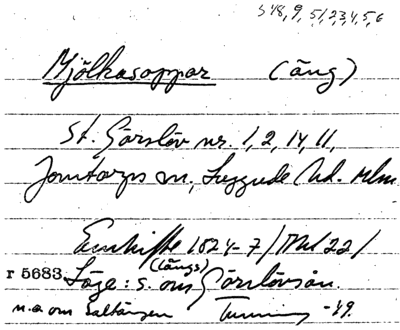 s 48, 9, 51, 2, 3, 4, 5, 6
Mjölkasoppar (äng)
St. Görslöv nr. 1, 2, 14, 11,
Jomtorps sn, Luggude hd. Mlm
Enskifte 1824-7 / 22 /
(längs)
r 5683 Läge: s. om Görslövsån.
n.a om Saltängen Tunning -49.